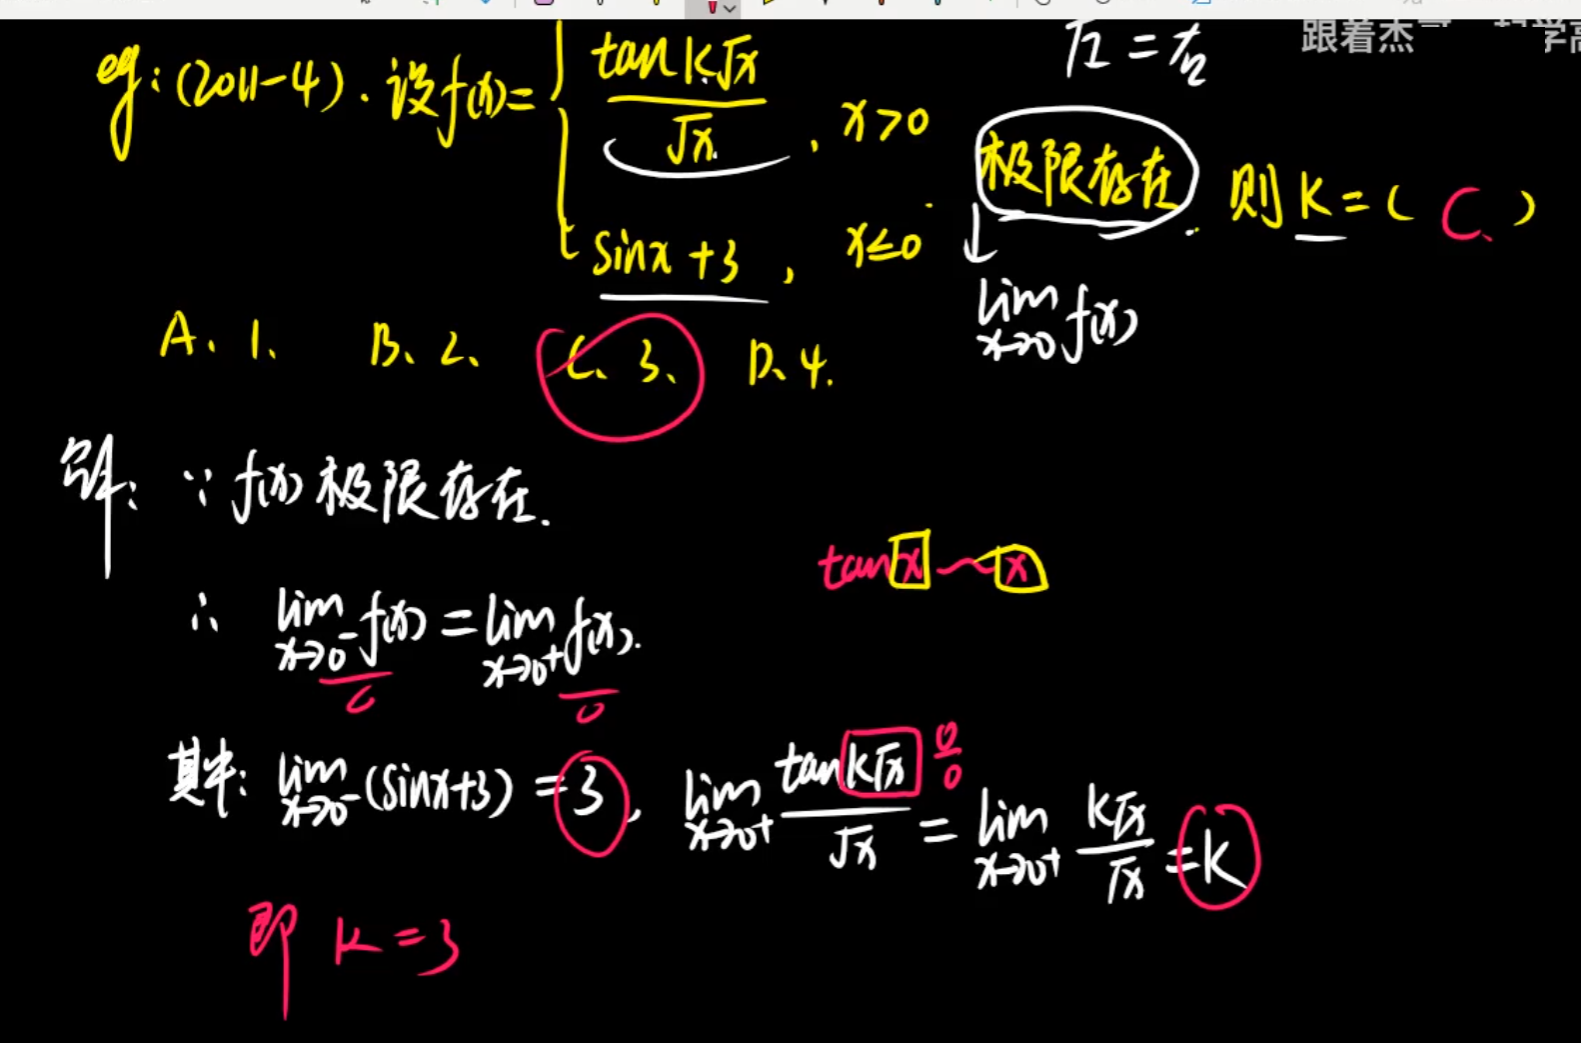 跟着杰
eg:(2011-4).设f(x)={ tan k√x / √x , x>0
sinx+3 , x≤0 . 极限存在. 则 k=( C、)
左=右
lim x→0 f(x)
A、1、 B、2、 C、3、 D、4.
解: ∵ f(x) 极限存在.
tan x ~ x
∴ lim x→0⁻ f(x) = lim x→0⁺ f(x).
其中: lim x→0⁻ (sinx+3) = 3, lim x→0⁺ tan k√x / √x 0/0 = lim x→0⁺ k√x / √x = k
即 k=3